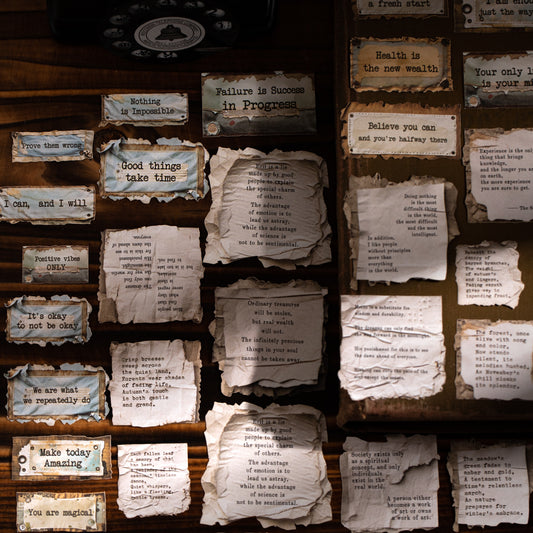 a fresh start
I am enou
just the way
Health is
the new wealth
Your only l
is your mi
Nothing
is Impossible
Failure is Success
in Progress
Prove them wrong
Good things
take time
Believe you can
and you're halfway there
I can, and I will
Positive vibes
ONLY
It's okay
to not be okay
We are what
we repeatedly do
Make today
Amazing
You are magical
Evil is a lie
made up by good
people to explain
the special charm
of others.
The advantage
of emotion is to
lead us astray,
while the advantage
of science is
not to be sentimental.
Doing nothing
is the most
difficult thing
in the world,
the most difficult
and the most
intelligent.
In addition,
I like people
without principles
more than
everything
else in the world.
Experience is the only
thing that brings
knowledge,
and the longer you are
on earth,
the more experience
you are sure to get.
Beneath the
canopy of
barren branches,
The
of nature's
end lingers,
Fading breath
gives way to
impending frost.
Ordinary treasures
will be stolen,
but real wealth
will not.
The infinitely precious
things in your soul
cannot be taken away.
Crisp breezes
sweep across
the quiet land,
Earth wears shades
of fading life,
Autumn's touch
is both gentle
and grand.
The dreamer can only find
His punishment for this is to see
the dawn ahead of everyone.
Nothing can
The forest, once
alive with song
and color,
Now stands
silent, its
melodies hushed,
As November's
chill slows
its splendor.
Evil is a lie
made up by good
people to explain
the special charm
of others.
The advantage
of emotion is to
lead us astray,
while the advantage
of science is
not to be sentimental.
Each fallen
leaf
dance,
like a fleeting
Society exists only
as a spiritual
concept, and only
individuals
exist in the
real world.
A person either
becomes a work
of art or owns
a work of art.
The meadow's
green fades to
amber and gold,
A testament to
time's relentless
march,
As nature
prepares for
winter's embrace.